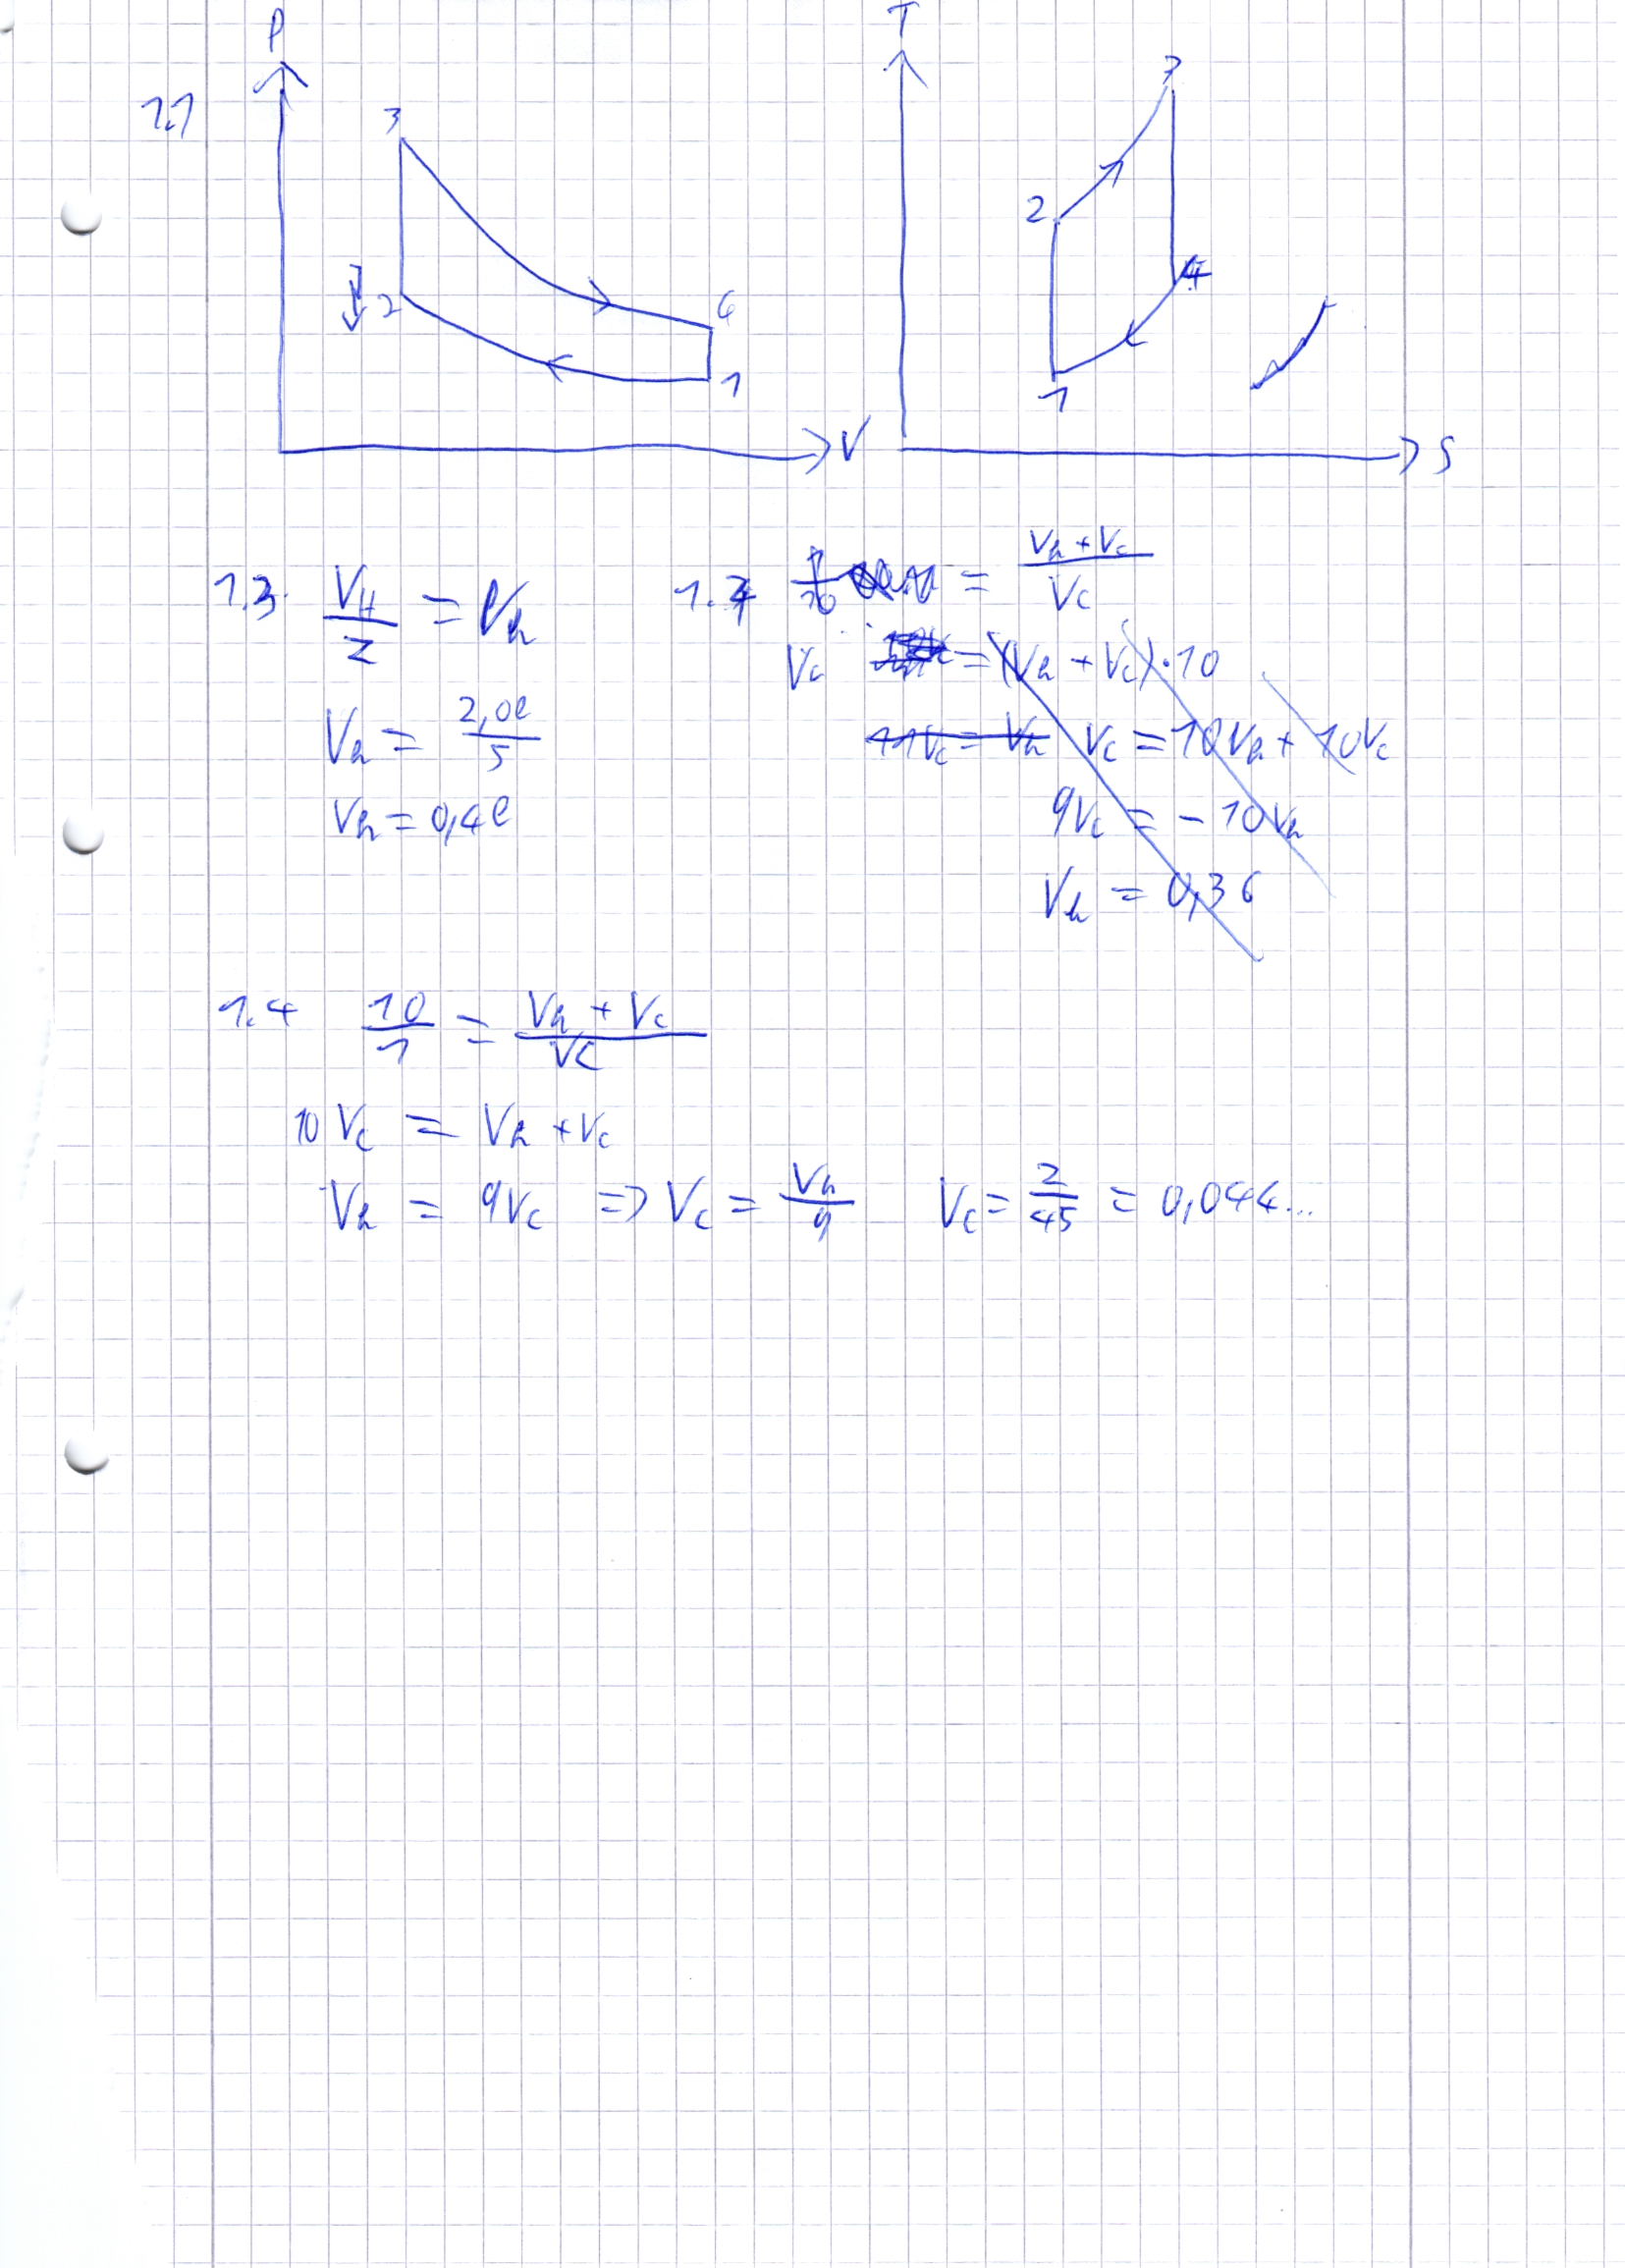 P
T
1.1
3
3
2
2
4
4
1
1
V
S
1.3. V_H / z = V_h
1.4 = (V_h + V_c) / V_c
V_c = (V_h + V_c) · 10
V_h = 2,0l / 5
11V_c = V_h V_c = 10V_h + 10V_c
V_h = 0,4l
9V_c = - 10V_h
V_h = 0,36
1.4 10 / 1 = (V_h + V_c) / V_c
10 V_c = V_h + V_c
V_h = 9V_c => V_c = V_h / 9 V_c = 2 / 45 = 0,044...